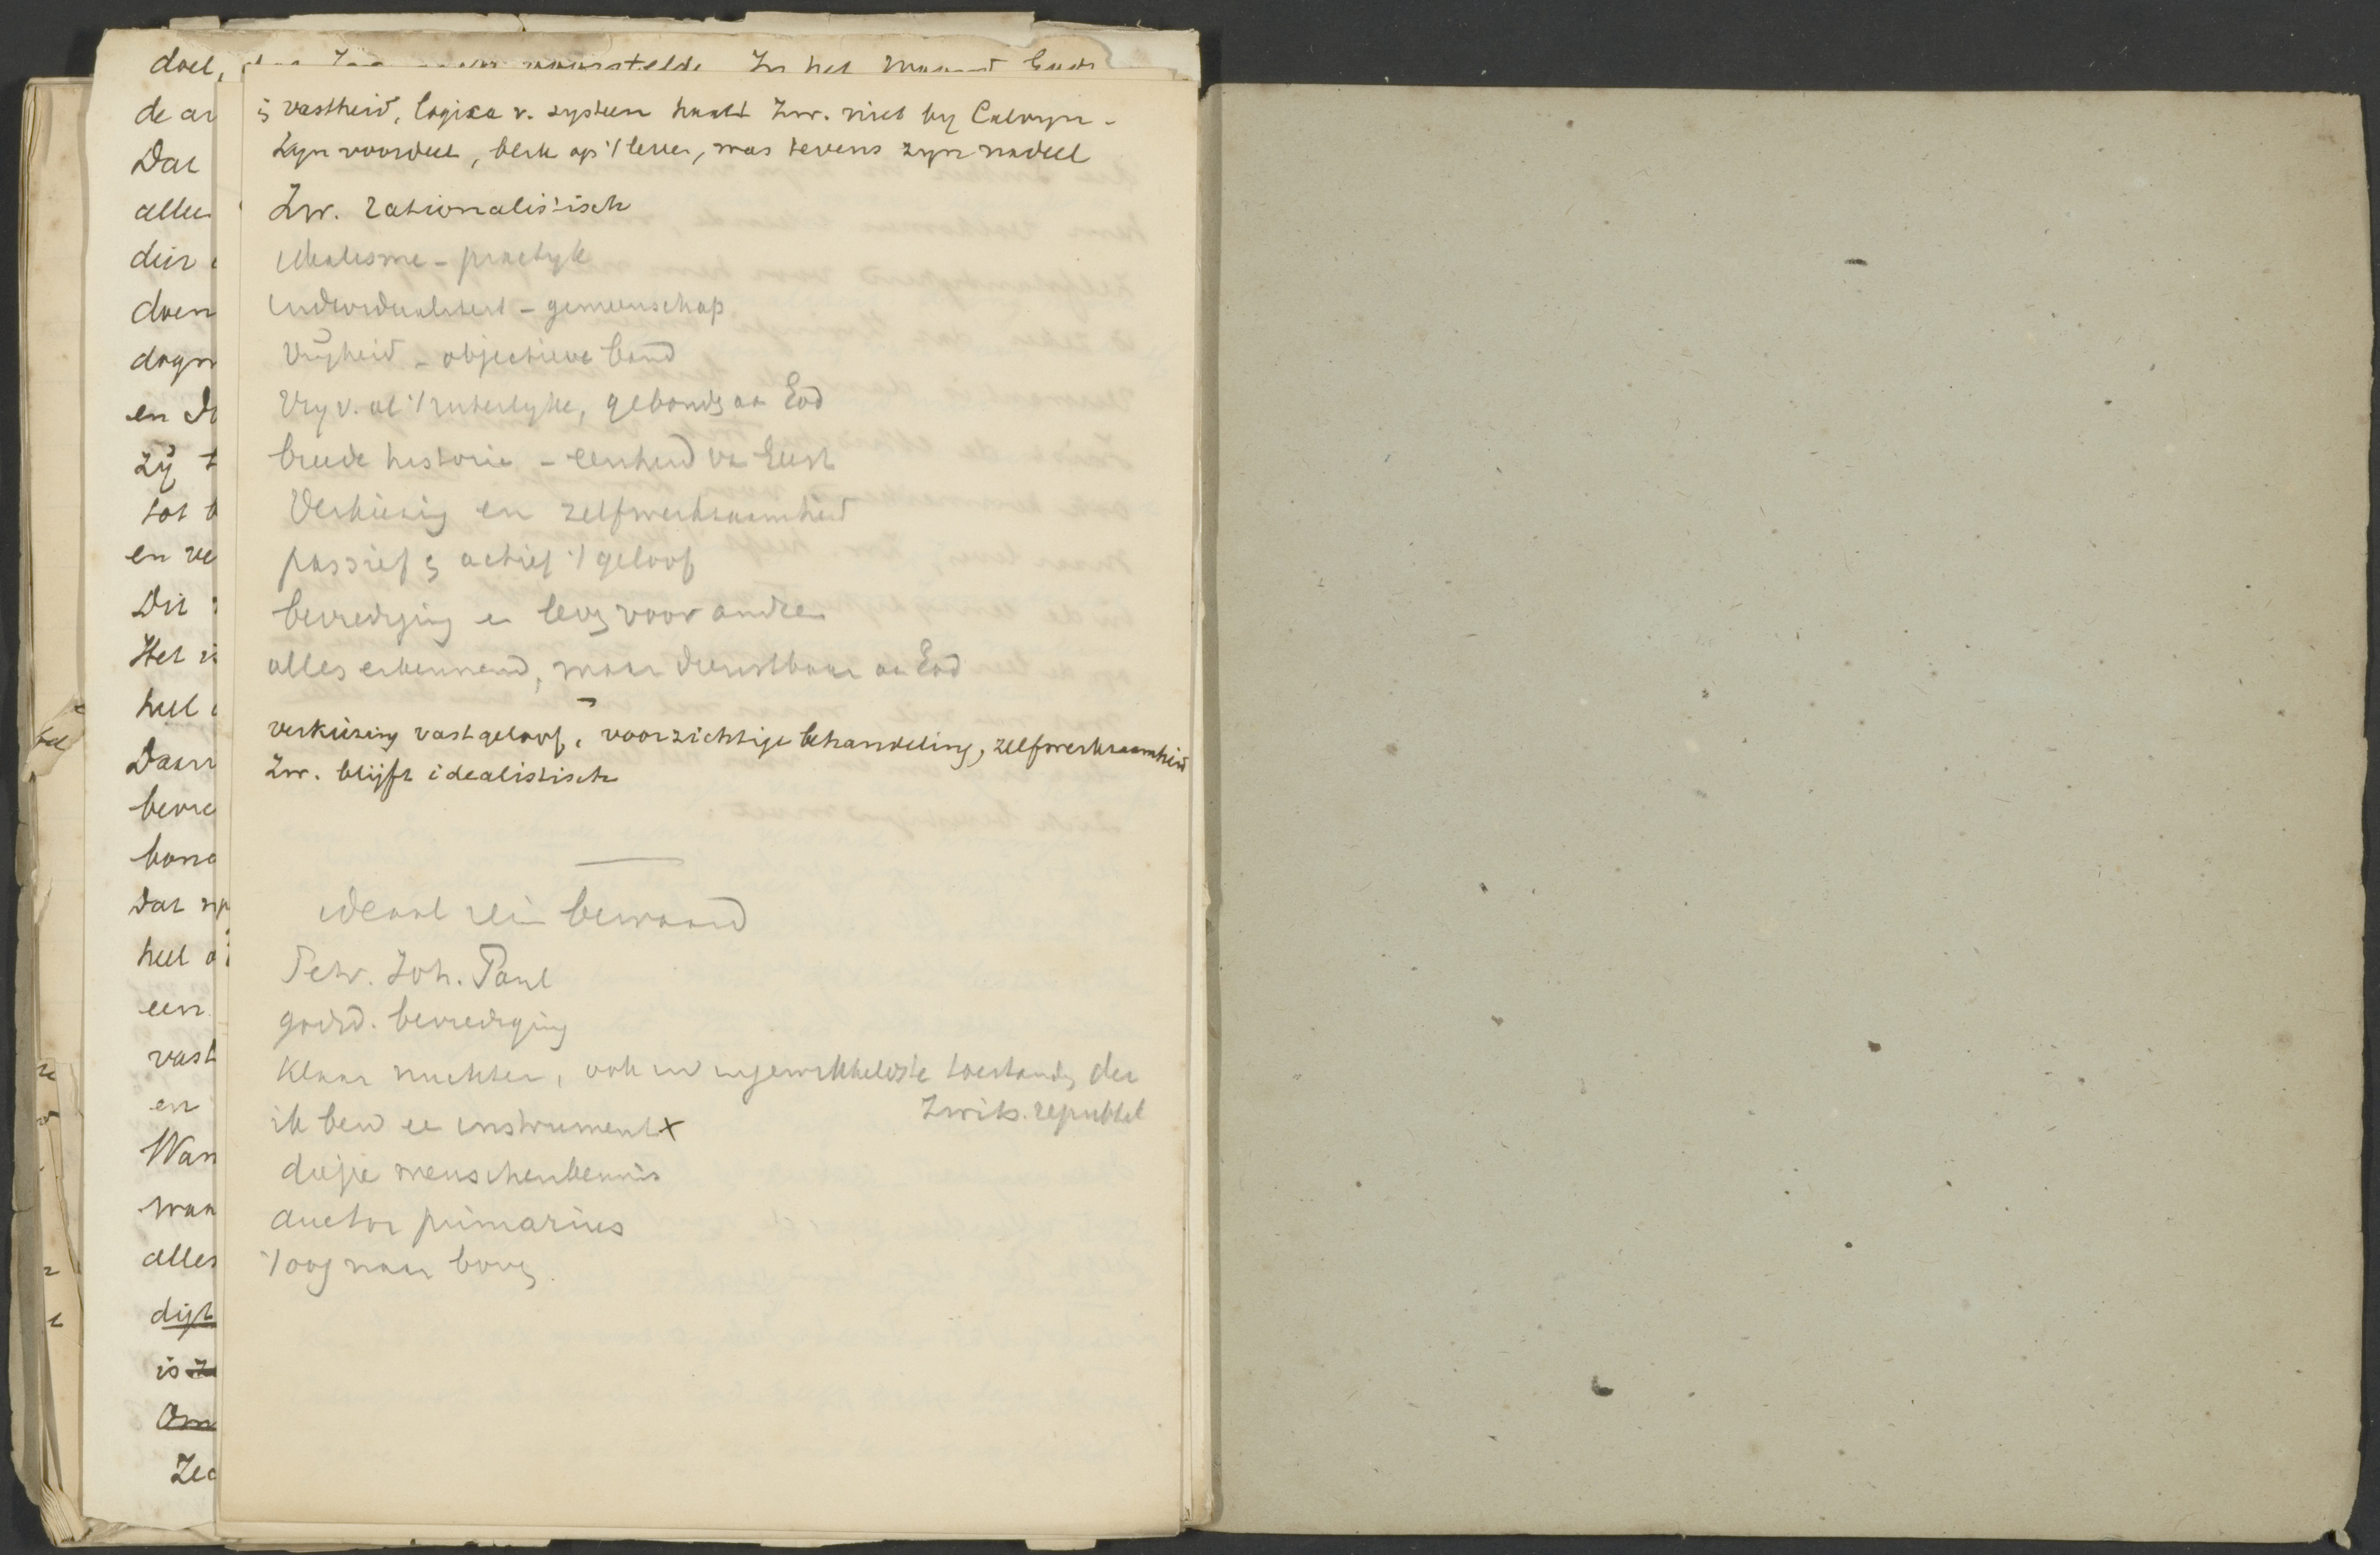 doel, voorstelde In het
de ar
Dat
allee
dier
doen
dogm
en D
zij t
tot b
en ve
Dit
Het i
heel
Daar
bevre
bond
Dat
heel
een
vast
en
Wan
waa
alles
dijk
is
Om
Zed
vastheid, logica v. systeem haalt Zw. niet by Calvyn -
Zyn voordeel, blik op 't leven, was tevens zyn nadeel
Zw. rationalistisch
idealisme - practyk
individualiteit - gemeenschap
Vrijheid - objectieve band
Vry v. al 't uiterlyke, gebonds aa God
breede historie - eenheid va Geest
Verkiezing en zelfwerkzaamheid
passief actief 't geloof
bevrediging e voor andre
alles erkennend, maar dienstbaar aa God
verkiezing vast geloof, voorzichtige behandeling, zelfwerkzaamheid
Zw. blijft idealistisch
ideaal rein bewaard
Petr. Joh. Paul
godsd. bevrediging
Klaar nuchter, ook in ingewikkeldste toestands der
Zwits. republiek
ik ben ee instrument x
diepe menschenkennis
auctor primarius
't oog naar